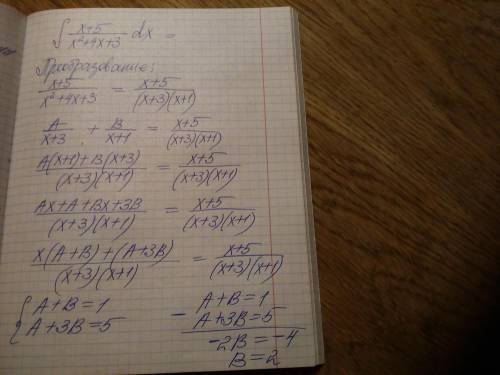 ∫ x+5 / x²+4x+3 dx =
Преобразование:
x+5 / x²+4x+3 = x+5 / (x+3)(x+1)
A / x+3 + B / x+1 = x+5 / (x+3)(x+1)
A(x+1)+B(x+3) / (x+3)(x+1) = x+5 / (x+3)(x+1)
Ax+A+Bx+3B / (x+3)(x+1) = x+5 / (x+3)(x+1)
x(A+B)+(A+3B) / (x+3)(x+1) = x+5 / (x+3)(x+1)
{ A+B=1
A+3B=5
- A+B=1
A+3B=5
-2B=-4
B=2